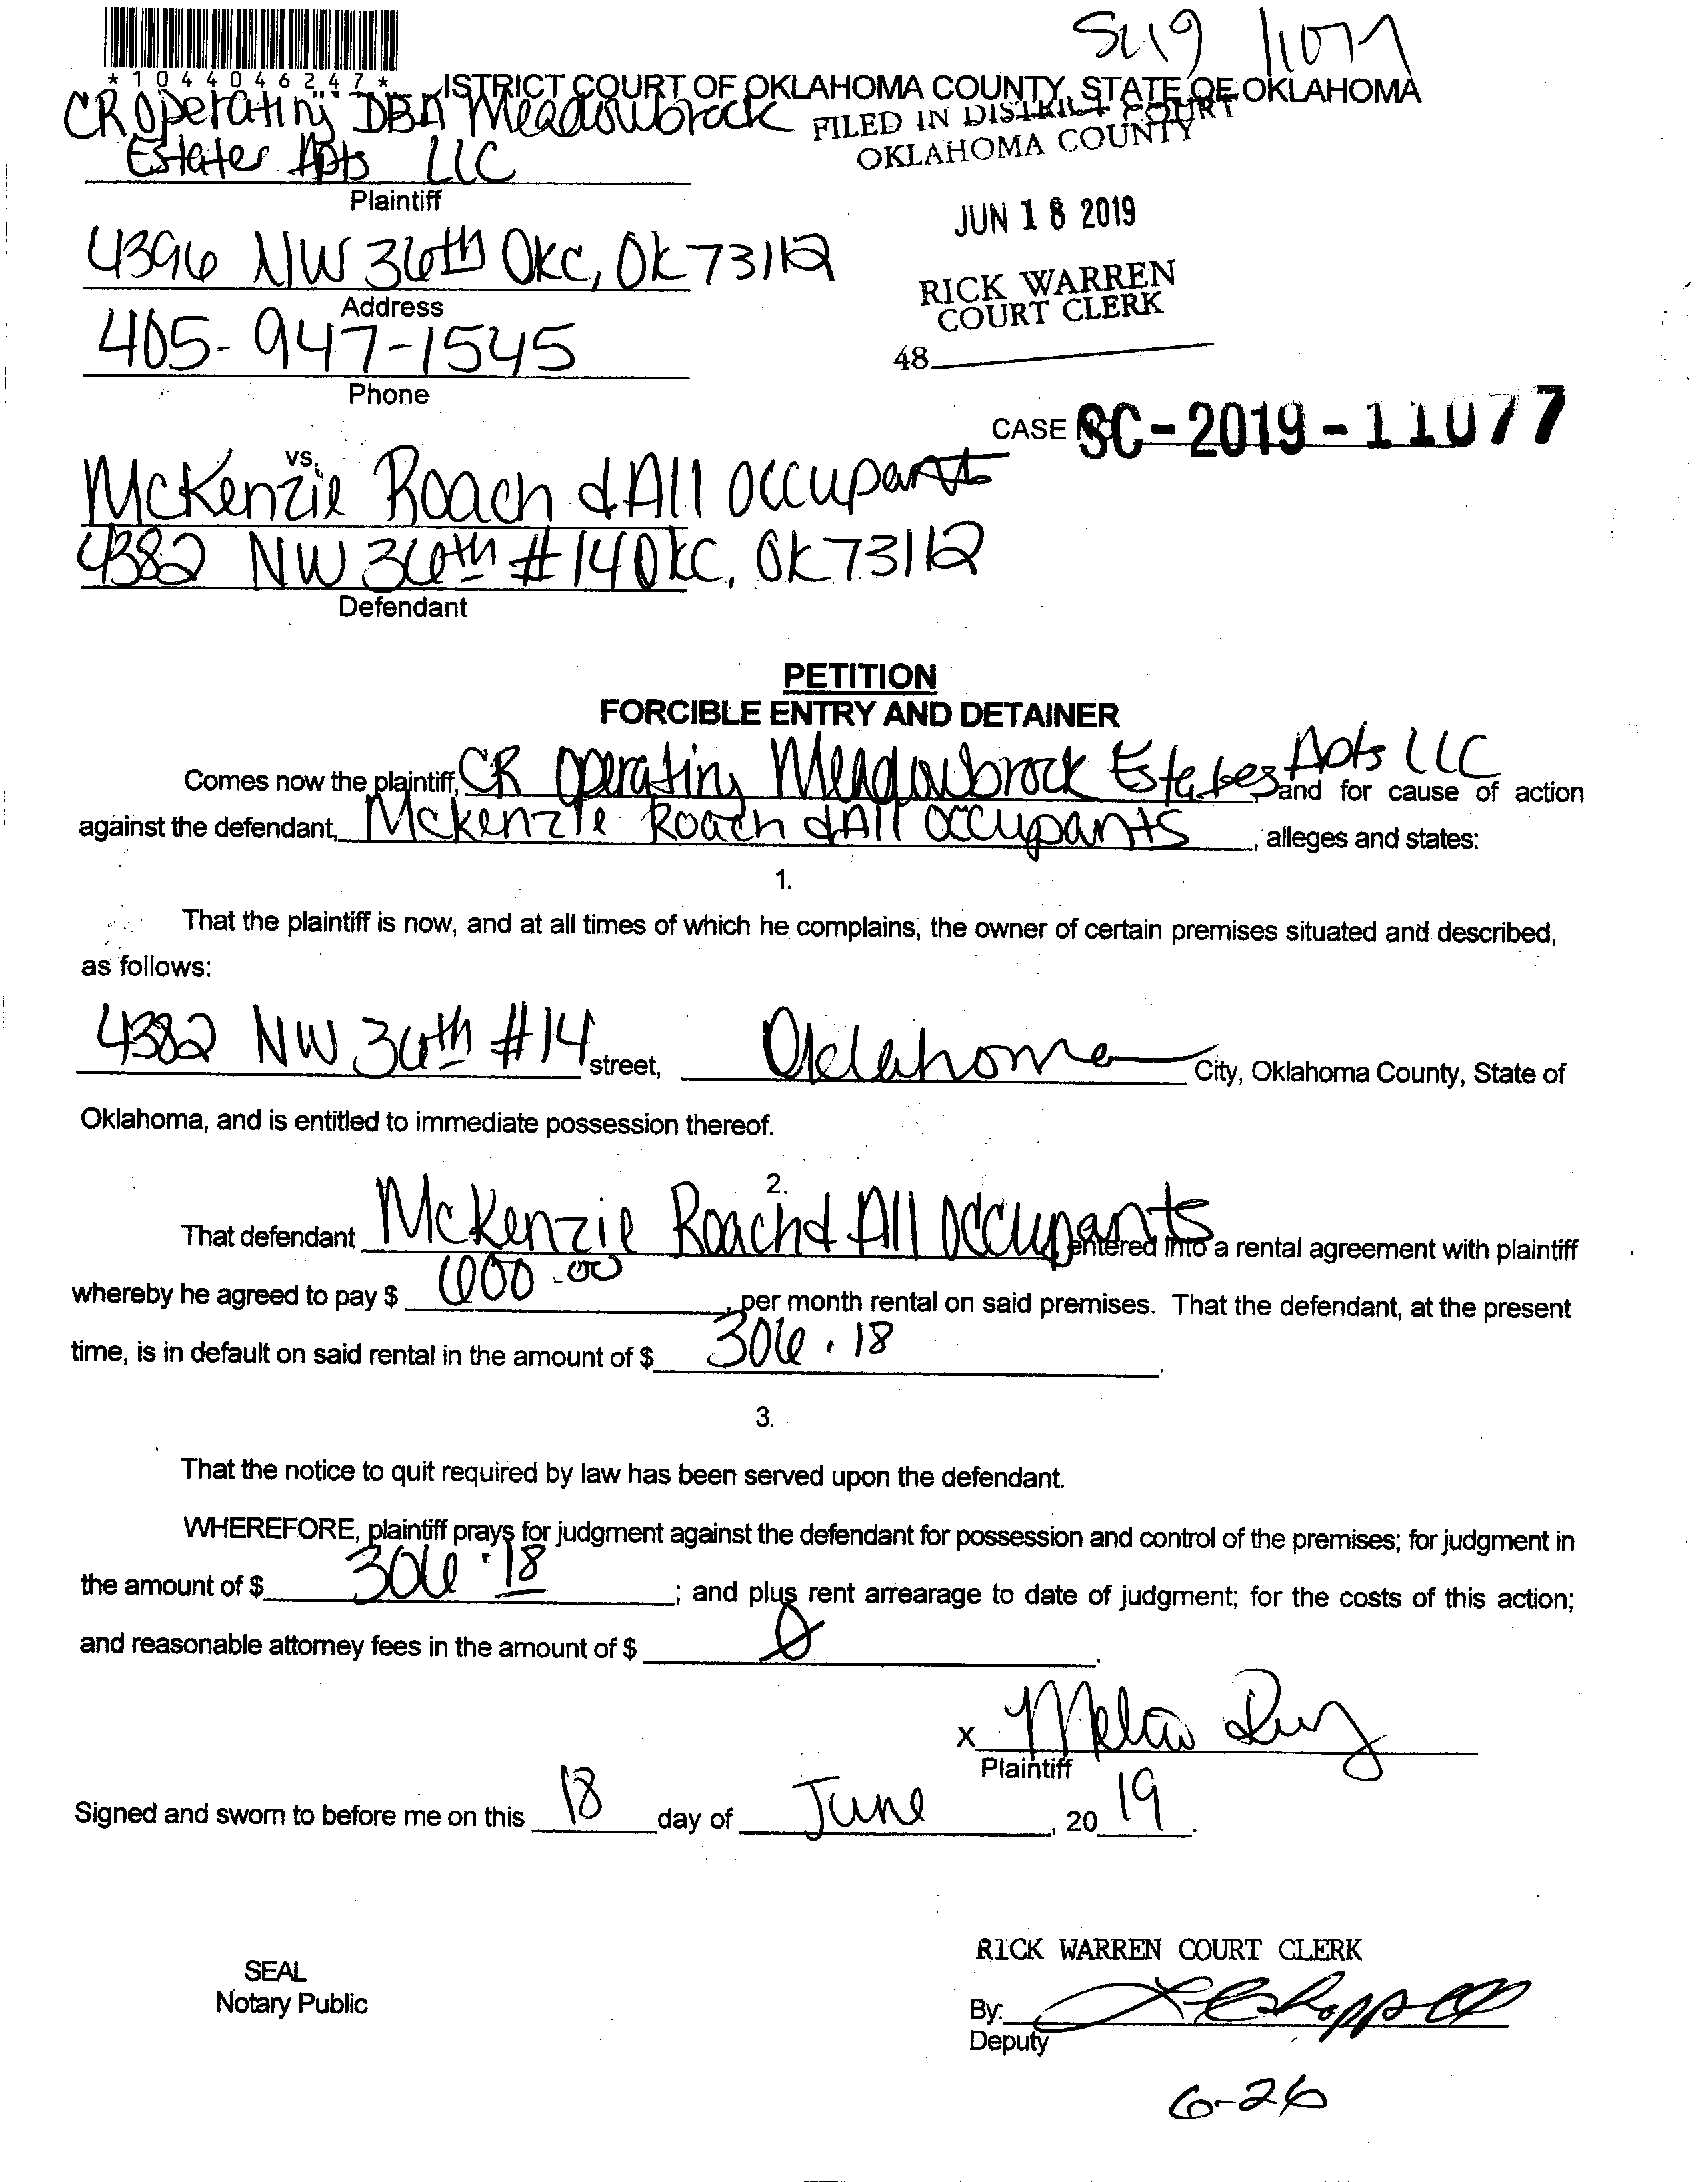 SC19 11077
*1044046247*
ISTRICT COURT OF OKLAHOMA COUNTY, STATE OF OKLAHOMA
CR Operating DBA Meadowbrock
Estates Apts LLC
Plaintiff
FILED IN DISTRICT COURT
OKLAHOMA COUNTY
JUN 18 2019
4396 NW 36th OKC, OK 73112
Address
RICK WARREN
COURT CLERK
405-947-1545
Phone
48
CASE SC-2019-11077
vs.
McKenzie Roach & All Occupants
4382 NW 36th #14 OKC, OK 73112
Defendant
PETITION
FORCIBLE ENTRY AND DETAINER
Comes now the plaintiff, CR Operating Meadowbrock Estates Apts LLC and for cause of action
against the defendant, McKenzie Roach & All Occupants, alleges and states:
1.
That the plaintiff is now, and at all times of which he complains, the owner of certain premises situated and described,
as follows:
4382 NW 36th #14 street, Oklahoma City, Oklahoma County, State of
Oklahoma, and is entitled to immediate possession thereof.
2.
That defendant McKenzie Roach & All Occupants entered into a rental agreement with plaintiff
whereby he agreed to pay $ 600.00, per month rental on said premises. That the defendant, at the present
time, is in default on said rental in the amount of $ 306.18.
3.
That the notice to quit required by law has been served upon the defendant.
WHEREFORE, plaintiff prays for judgment against the defendant for possession and control of the premises; for judgment in
the amount of $ 306.18; and plus rent arrearage to date of judgment; for the costs of this action;
and reasonable attorney fees in the amount of $ 0.
x
Plaintiff
Signed and sworn to before me on this 18 day of June, 2019.
RICK WARREN COURT CLERK
SEAL
Notary Public
By:
Deputy
6-26